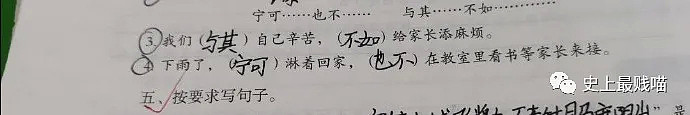 宁可……也不……　与其……不如…………
③我们（与其）自己辛苦，（不如）给家长添麻烦。
④下雨了，（宁可）淋着回家，（也不）在教室里看书等家长来接。
五、按要求写句子。
史上最贱喵